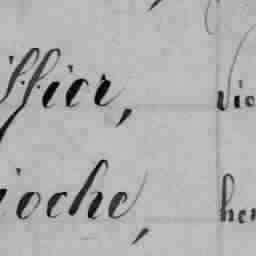 ffier, Vic
ioche, her